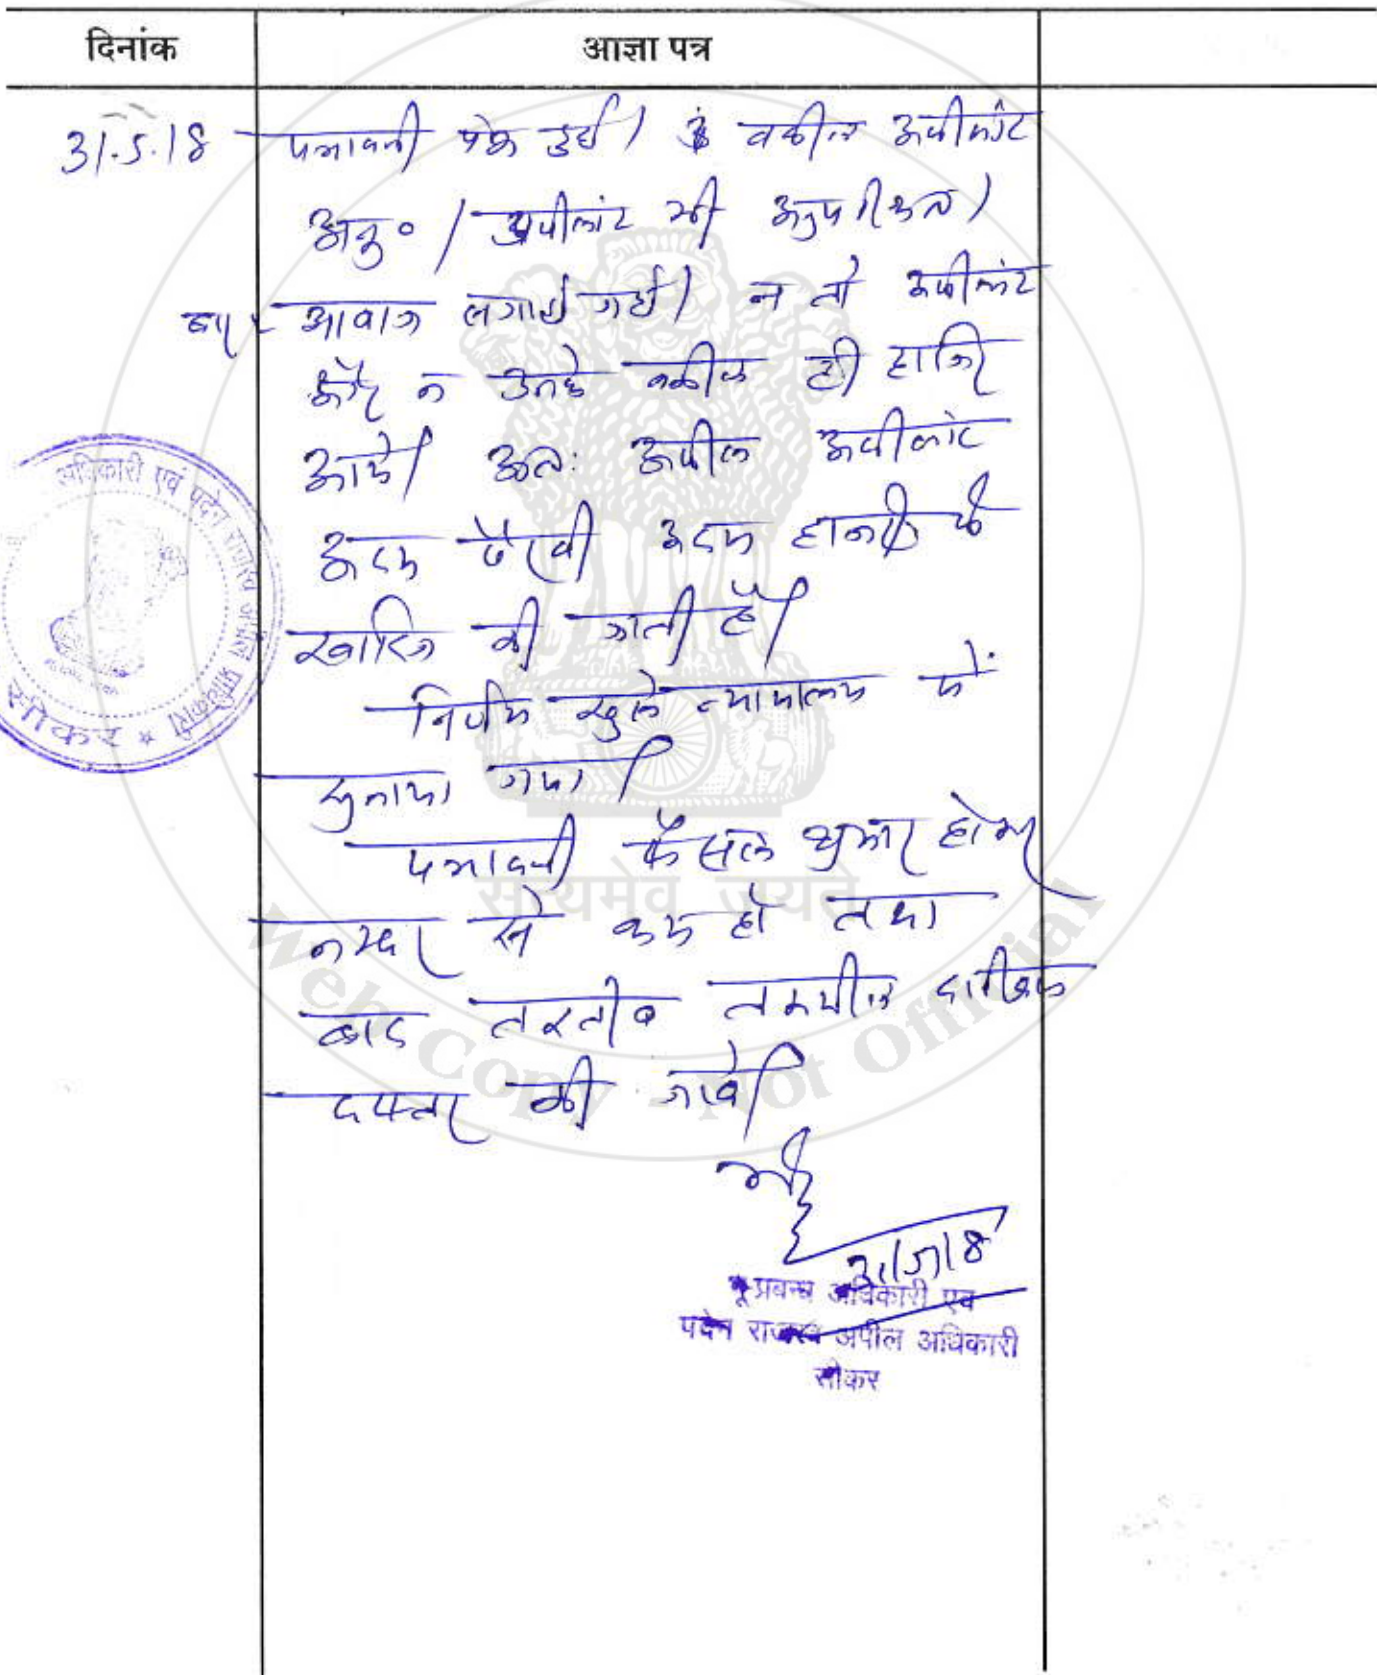 दिनांक आज्ञा पत्र
31.5.18 पत्रावली पेश हुई। वकील अपीलांट
अनु० / अपीलांट भी अनुपस्थित।
बार २ आवाज लगाई गई। न तो अपीलांट
और न उनके वकील ही हाजिर
आये। अतः अपील अपीलांट
अदम पैरवी अदम हाजरी में
खारिज की जाती है।
निर्णय खुले न्यायालय में
सुनाया गया।
पत्रावली फैसल शुमार होकर
नम्बर से कम हो तथा
बाद तरतीब तकमील दाखिल
दफ्तर की जावे।
31/5/18
भू-प्रबन्ध अधिकारी एवं
पदेन राजस्व अपील अधिकारी
सीकर
अधिकारी एवं पदेन राजस्व अपील प्राधिकारी
सीकर *
सत्यमेव जयते
Web Copy - Not Official